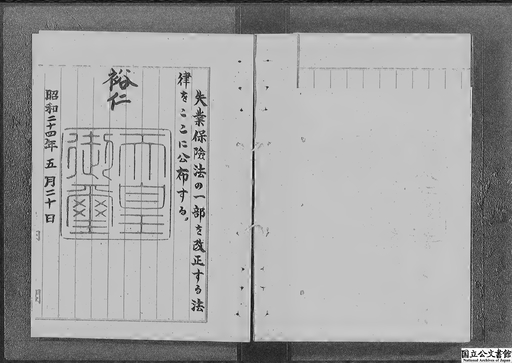 失業保険法の一部を改正する法
律をここに公布する。
裕仁
天皇
御璽
昭和二十四年五月二十日
国立公文書館
National Archives of Japan